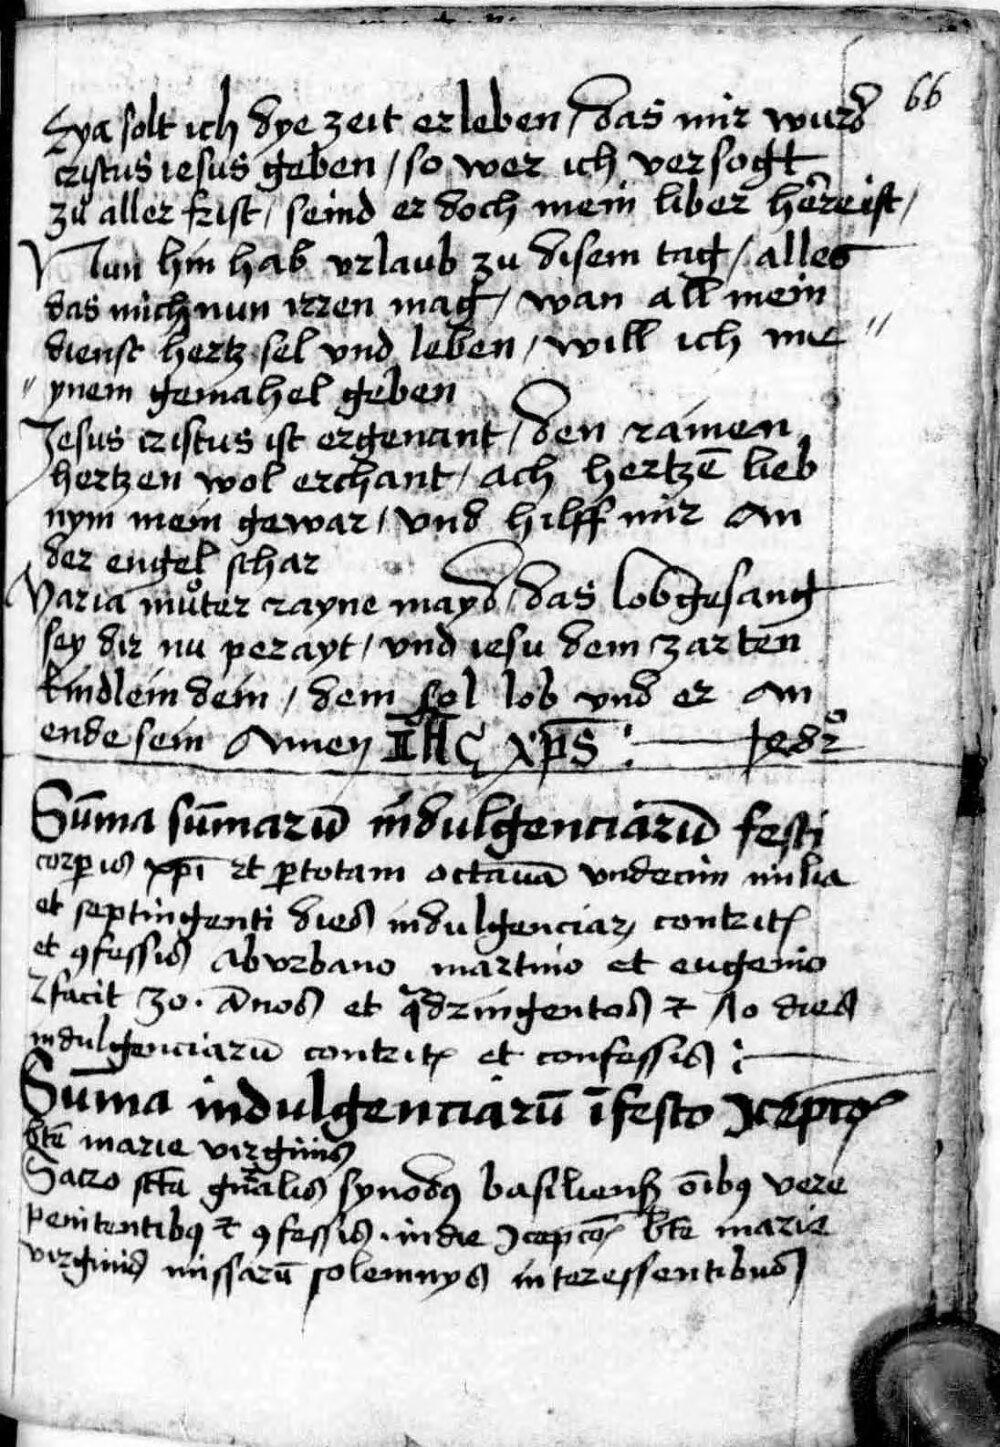 66
Eya solt ich dye zeit erleben / das mir wurd
cristus iesus geben / so wer ich versogt
zu aller frist / seind er doch mein liber herre ist /
Nun hin hab vrlaub zu disem tag / alles
das mich nun irren mag / wan all mein
dienst hertz sel vnd leben / will ich me〃
〃ynem gemahel geben
Jesus cristus ist er genant / den rainen
hertzen wol erchant / ach hertzē lieb
nym mein gewar / vnd hilff mir an
der engel schar
Maria muͦter rayne mayd / das lobgesang
sey dir nu perayt / vnd iesu dem zarten
kindlein dein / dem sol lob vnd er an
ende sein Amen IHS xp̄s :
Sūma sūmarū indulgenciarū festi
corp̄is xp̄i et p̄ totam octauā vndecim milia
et septingenti dies indulgenciaꝝ contritꝭ
et ꝯfessis ab vrbano martino et eugenio
⁊ facit 30. ānos et q̄dringentos ⁊ 50 dies
indulgenciarū contritꝭ et confessis :
Sūma indulgenciarū ī festo ꝯcepcōꝭ
btē marie virginis
Sacro sctā gn̄alis synodꝰ basilienß ōibꝰ vere
penitentibꝰ ⁊ ꝯfessis in die ꝯcepcōꝭ btē marie
virginis missarū solemnys interessentibus